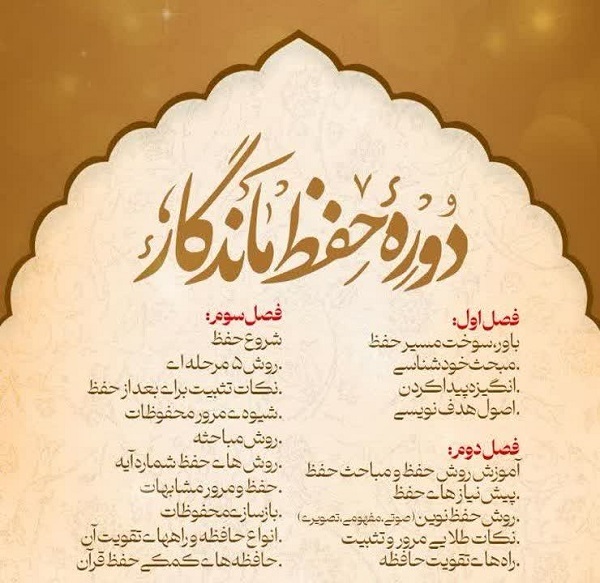 دورهٔ حفظ ماندگار
فصل اول:
باور، سوخت مسیر حفظ
.مبحث خودشناسی
.انگیزه پیدا کردن
.اصول هدف نویسی
فصل دوم:
آموزش روش حفظ و مباحث حفظ
.پیش نیازهای حفظ
.روش حفظ نوین (صوتی، مفهومی، تصویری)
.نکات طلایی مرور و تثبیت
.راه های تقویت حافظه
فصل سوم:
شروع حفظ
.روش ۵ مرحله ای
.نکات تثبیت برای بعد از حفظ
.شیوه ی مرور محفوظات
.روش مباحثه
.روش های حفظ شماره آیه
.حفظ و مرور مشابهات
.بازسازی محفوظات
.انواع حافظه و راههای تقویت آن
.حافظه های کمکی حفظ قرآن